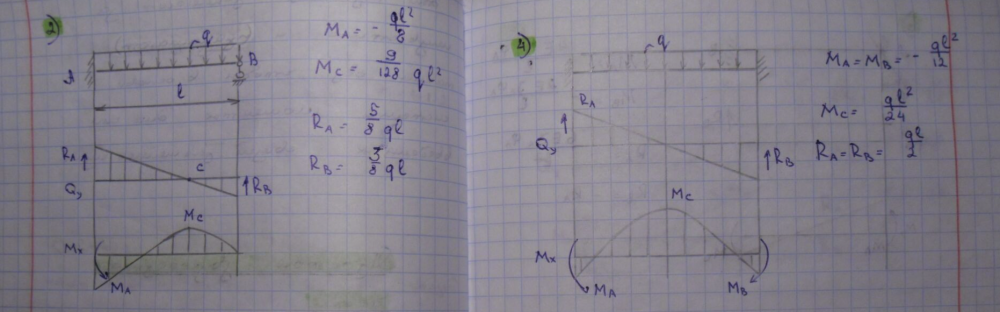 2)
q
A
B
l
R_A
C
Q_y
R_B
M_C
M_x
M_A
M_A = - ql²/8
M_C = 9/128 ql²
R_A = 5/8 ql
R_B = 3/8 ql
4)
q
R_A
Q_y
R_B
M_C
M_x
M_A
M_B
M_A = M_B = - ql²/12
M_C = ql²/24
R_A = R_B = ql/2